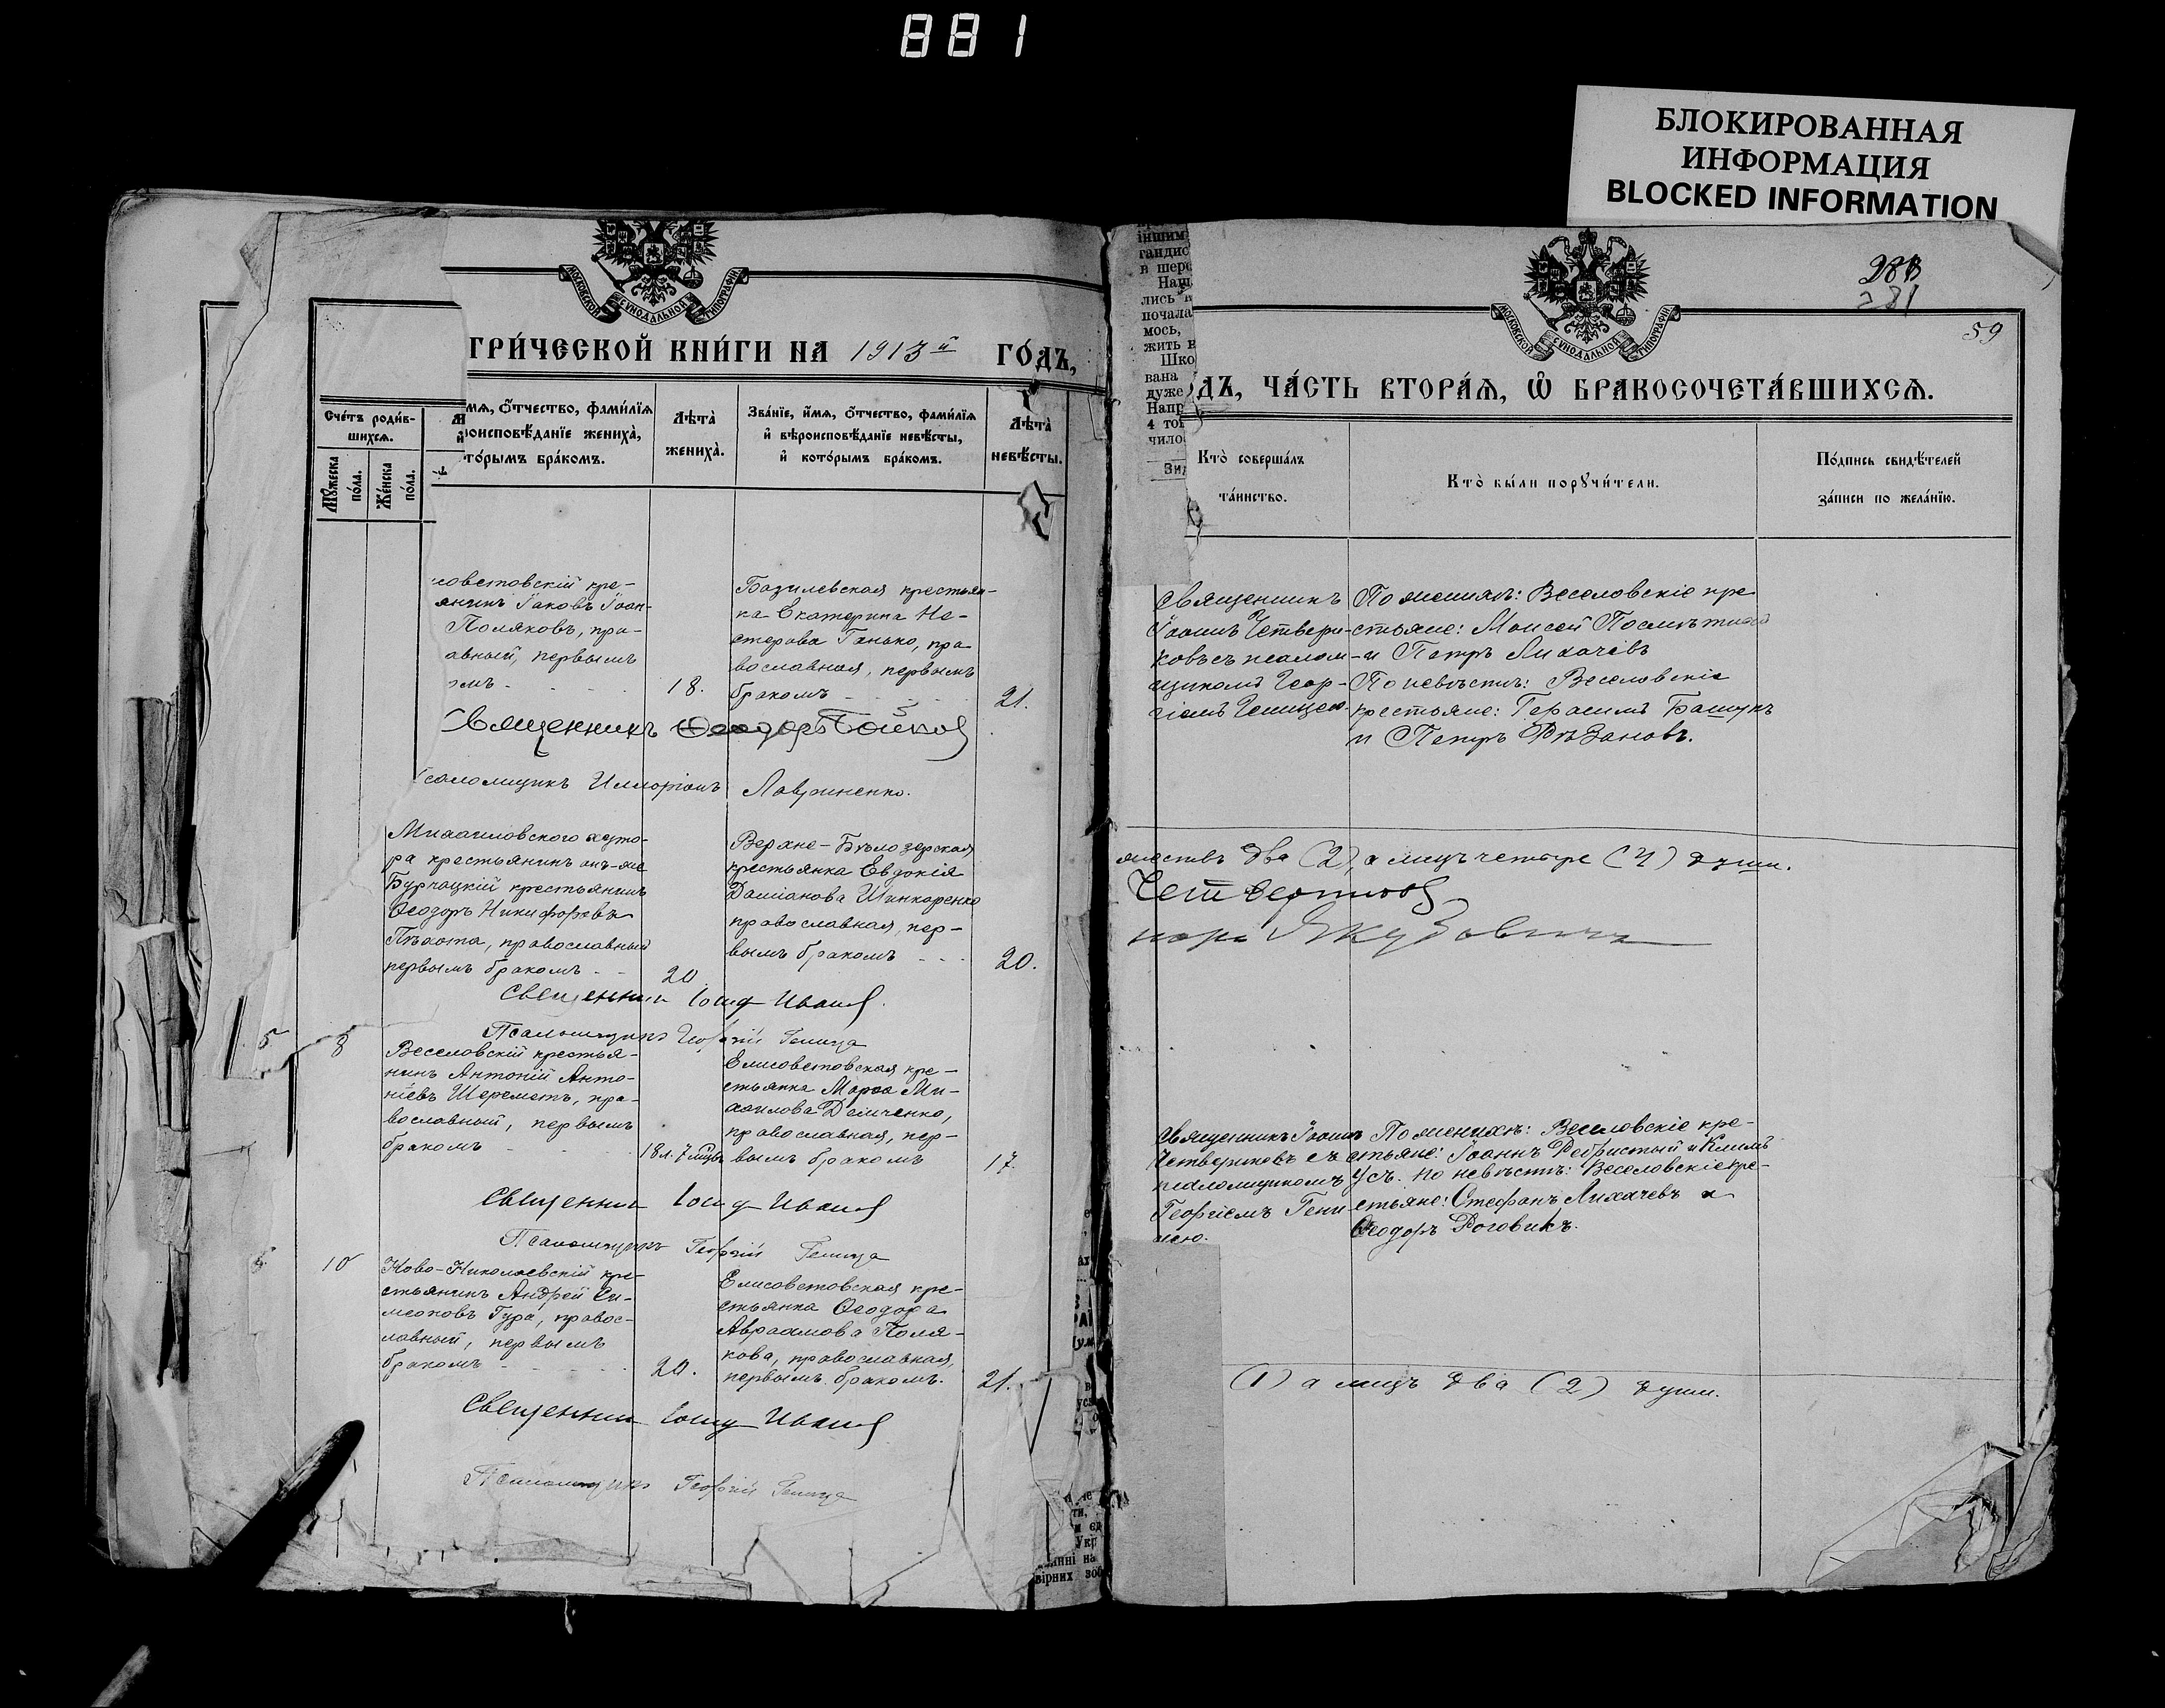 881
БЛОКИРОВАННАЯ
ИНФОРМАЦИЯ
BLOCKED INFORMATION
МОСКОВСКОЙ СУНОДАЛЬНОЙ ТИПОГРАФІИ
ГРИ́ЧЕСКОЙ КНИ́ГИ НА 1913й ГО́ДЪ,
Сче́тъ роди́в-
шихсѧ.
Мꙋ́жеска по́ла.
Же́нска по́ла.
мѧ, ѻ҆́тчество, фами́лїѧ
роисповѣ́данїе жениха̀,
то́рымъ бра́комъ.
Лѣ́та
жениха̀.
Зва́нїе, и҆́мѧ, ѻ҆́тчество, фами́лїѧ
и҆ вѣроисповѣ́данїе невѣ́сты,
и҆ кото́рымъ бра́комъ.
Лѣ́та
невѣ́сты.
совѣтовскій кре-
янинъ Іаковъ Іоан-
Поляковъ, пра-
авный, первымъ
омъ 18.
Базилевская крестьян-
ка Екатерина Не-
стерова Ганько, пра
вославная, первымъ
бракомъ 21.
Священникъ Ѳеодоръ Бойков
саломщикъ Илларіонъ Лавриненко.
Михаиловского хуто-
ра крестьянинъ онъ-же
Бурчацкій крестьянинъ
Ѳеодоръ Никифоровъ
Пѣхота, православный
первымъ бракомъ 20
Верхне-Бѣлозерская
крестьянка Евдокія
Даміанова Шинкаренко
православная, пер-
вымъ бракомъ 20.
Священник Іоанн
Псаломщикъ Георгій Геница
5 8
Веселовскій крестья-
нинъ Антоній Анто-
ніевъ Шереметъ, пра-
вославный, первымъ
бракомъ 18 л. 7 мцвъ
Елисовѣтовская кре-
стьянка Марѳа Ми-
хаилова Демченко,
православная, пер-
вымъ бракомъ 17.
Священник Іоанн
Псаломщикъ Георгій Геница
10
Ново-Николаевскій кре-
стьянинъ Андрей Си-
меоновъ Гура, правос-
лавный, первымъ
бракомъ 20.
Елисовѣтовская кре-
стьянка Ѳеодора
Авраамова Поля-
кова, православная,
первымъ бракомъ. 21.
Священник Іоанн
Псаломщикъ Георгій Геница
281
59
МОСКОВСКОЙ СУНОДАЛЬНОЙ ТИПОГРАФІИ
ДЪ, ЧА́СТЬ ВТОРА́Ѧ, Ѽ БРАКОСОЧЕТА́ВШИХСѦ.
Кто̀ соверша́лъ
та́инство.
Кто̀ бы́ли порꙋчи́тели.
По́дпись свидѣ́телей
за́писи по жела́нїю.
Священникъ
Іоаннъ Четвери-
ковъ съ псалом-
щикомъ Геор-
гіемъ Геницею.
По жениху: Веселовскіе кре
стьяне: Моисей Посмѣтный
и Петръ Лихачевъ
По невѣстѣ: Веселовскіе
крестьяне: Герасимъ Башукъ
и Петръ Рѣзановъ.
два (2), а лицъ четыре (4) души.
Четвериков
Якубович
Священникъ Іоаннъ
Четвериковъ съ
псаломщикомъ
Георгіемъ Гени-
цею.
По женихѣ: Веселовскіе кре-
стьяне: Іоаннъ Ребристый и Климъ
Усъ. По невѣстѣ: Веселовскіе кре-
стьяне: Стефанъ Лихачевъ и
Ѳеодоръ Роговикъ.
(1) а лицъ два (2) души.